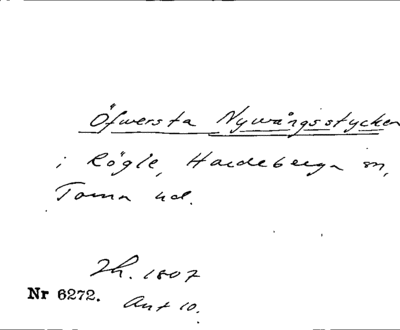 Öfwersta Nywångsstycken
i Rögle, Hardeberga sn,
Torna hd.
Ih. 1807
Nr 6272. Akt 10.